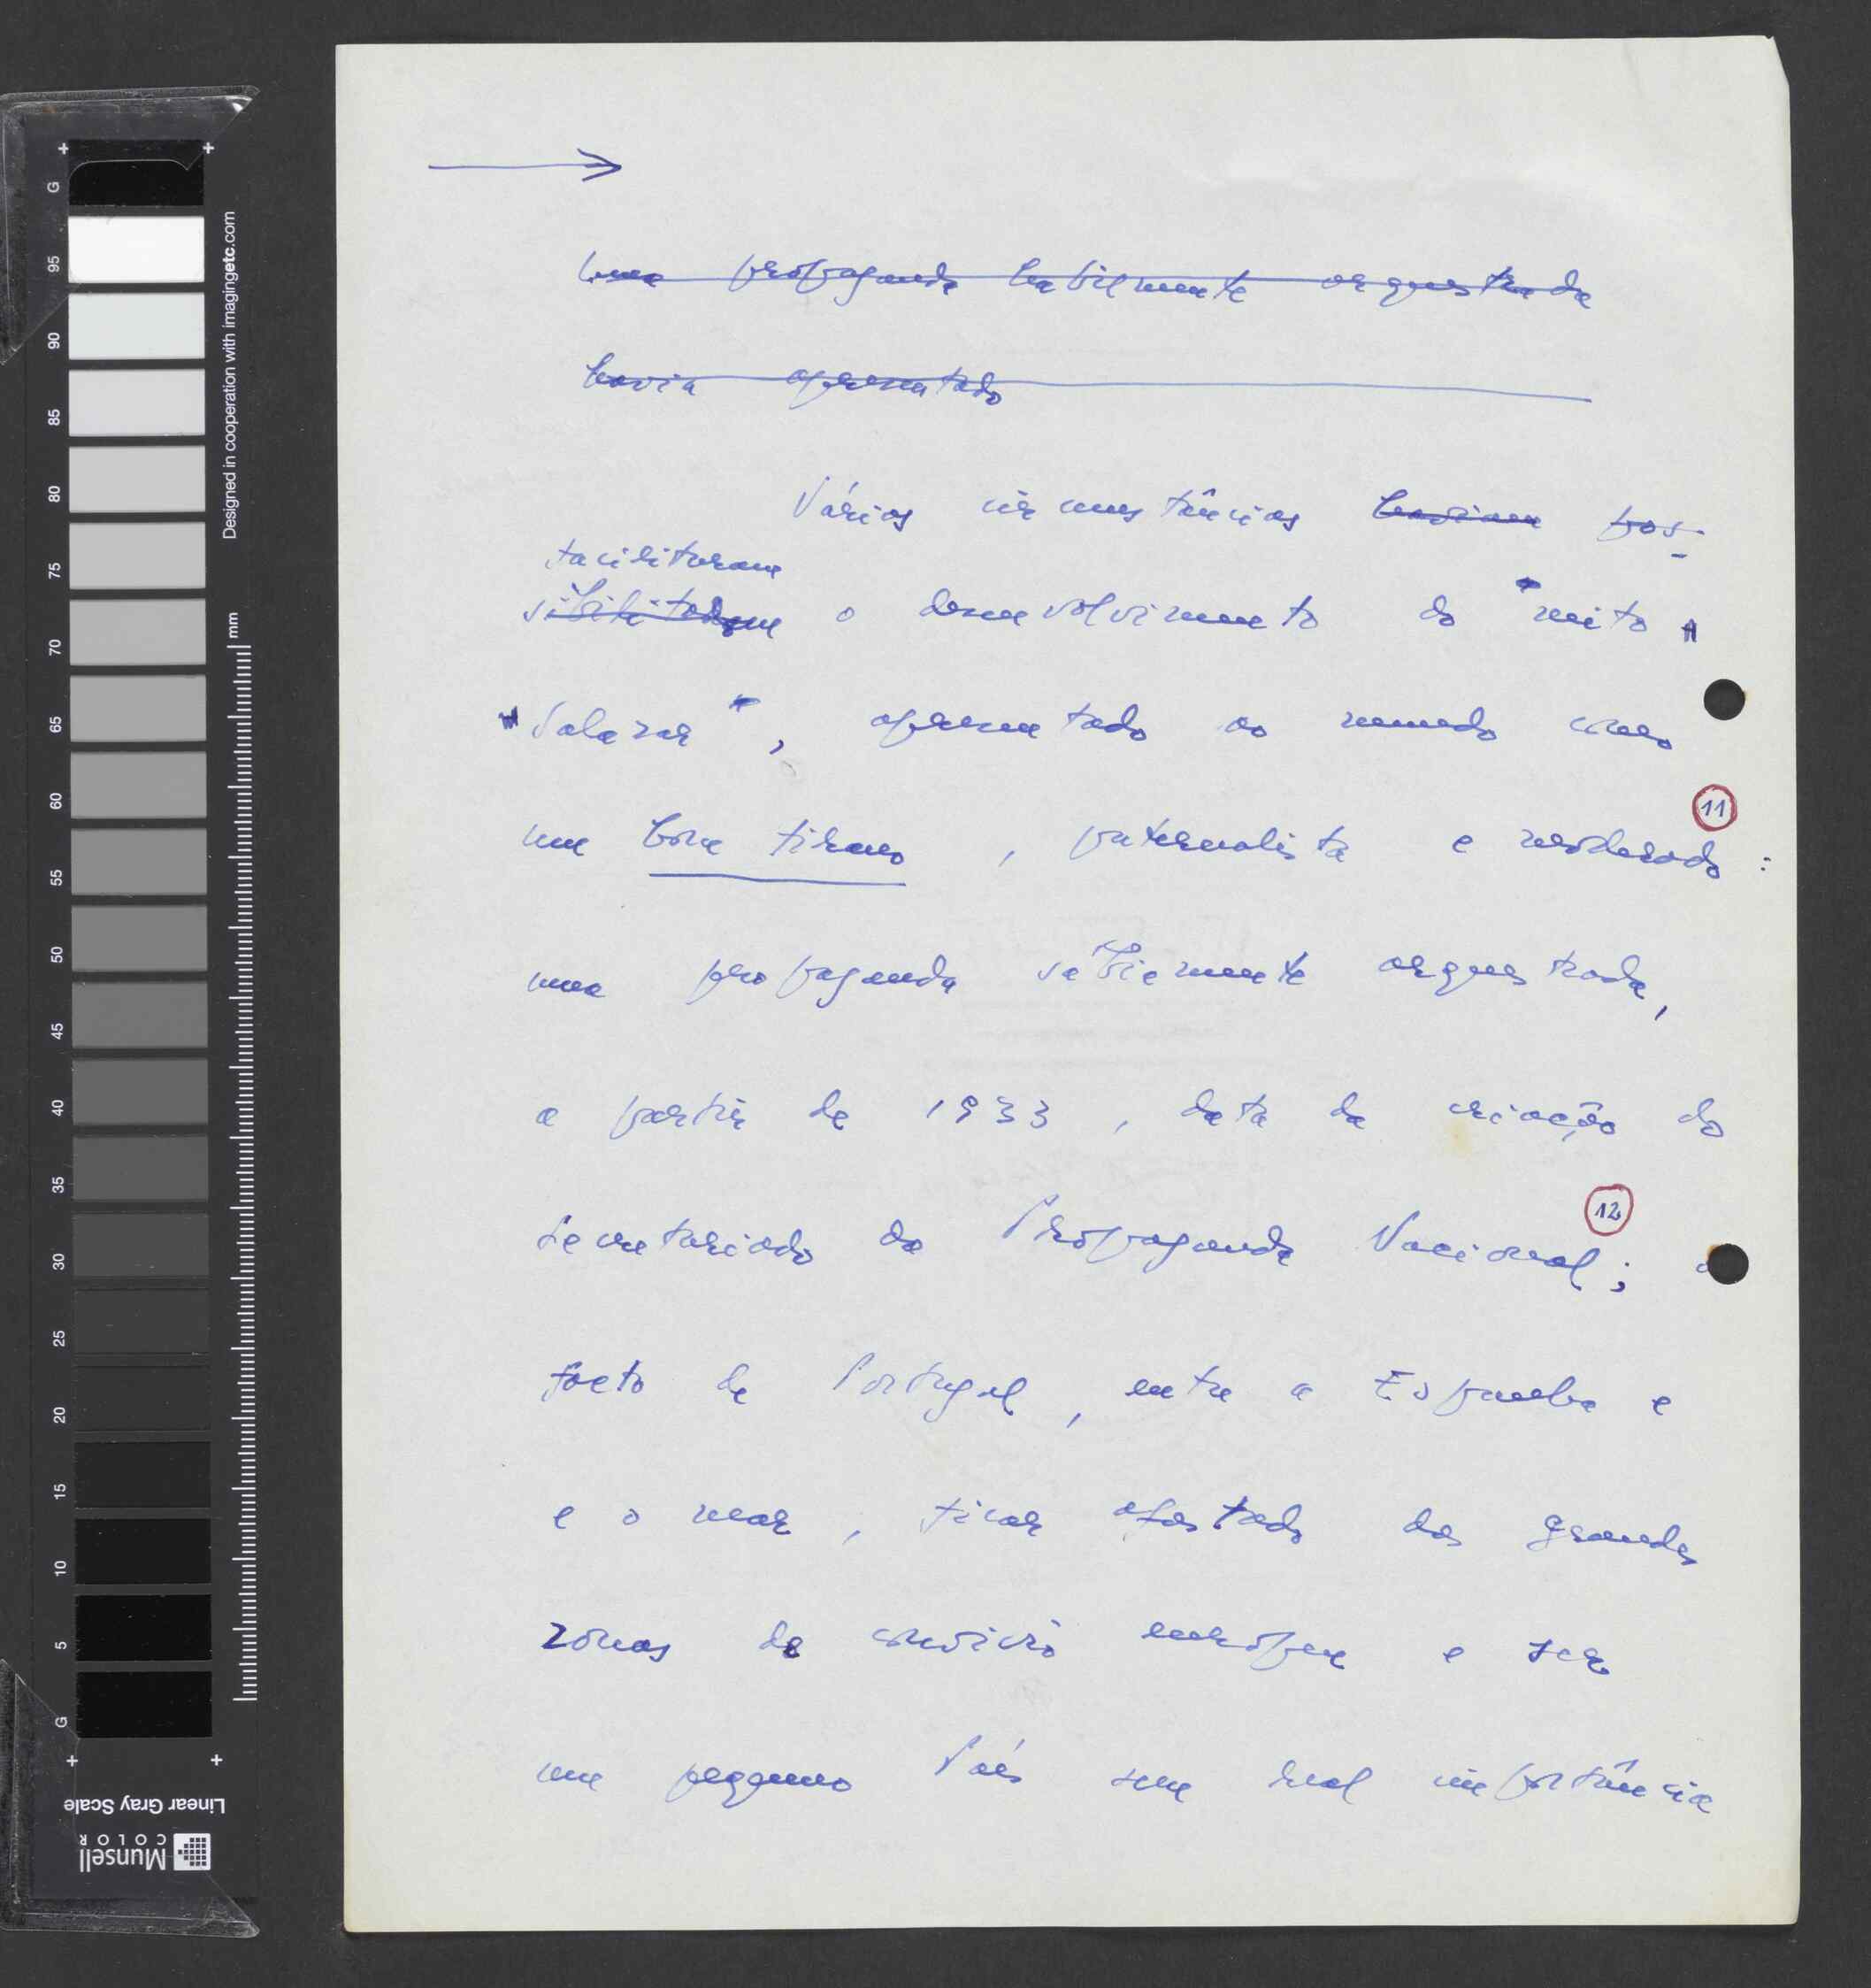 G
95
90
85
80
75
70
65
60
55
50
45
40
35
30
25
20
15
10
5
G
Designed in cooperation with imagingetc.com
mm
Linear Gray Scale
Munsell
COLOR
→
Uma propaganda habilmente orquestrada
havia apresentado
Várias circunstâncias haviam pos-
facilitaram
sibilitadam o desenvolvimento do "mito"
"Salazar", apresentado ao mundo como
11
um bom tirano, paternalista e moderado:
uma propaganda sabiamente orquestrada,
a partir de 1933, data da criação do
12
Secretariado da Propaganda Nacional; o
facto de Portugal, entre a Espanha e
e o mar, ficar afastado das grandes
zonas de convívio europeu e ser
um pequeno País sem real importância